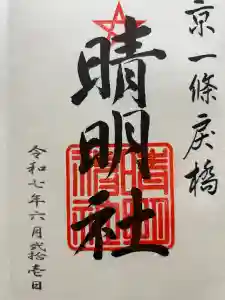 京一條戻橋
晴明社
令和七年六月弐拾壱日